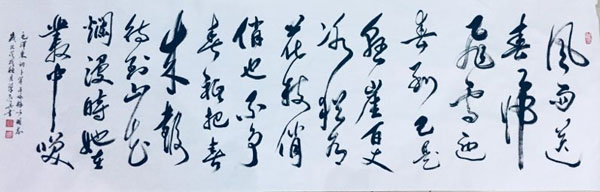 風雨送
春歸
飛雪迎
春到已是
懸崖百丈
冰猶有
花枝俏
俏也不爭
春祇把春
來報
待到山花
爛漫時她在
叢中咲
毛澤東詞卜算子咏梅